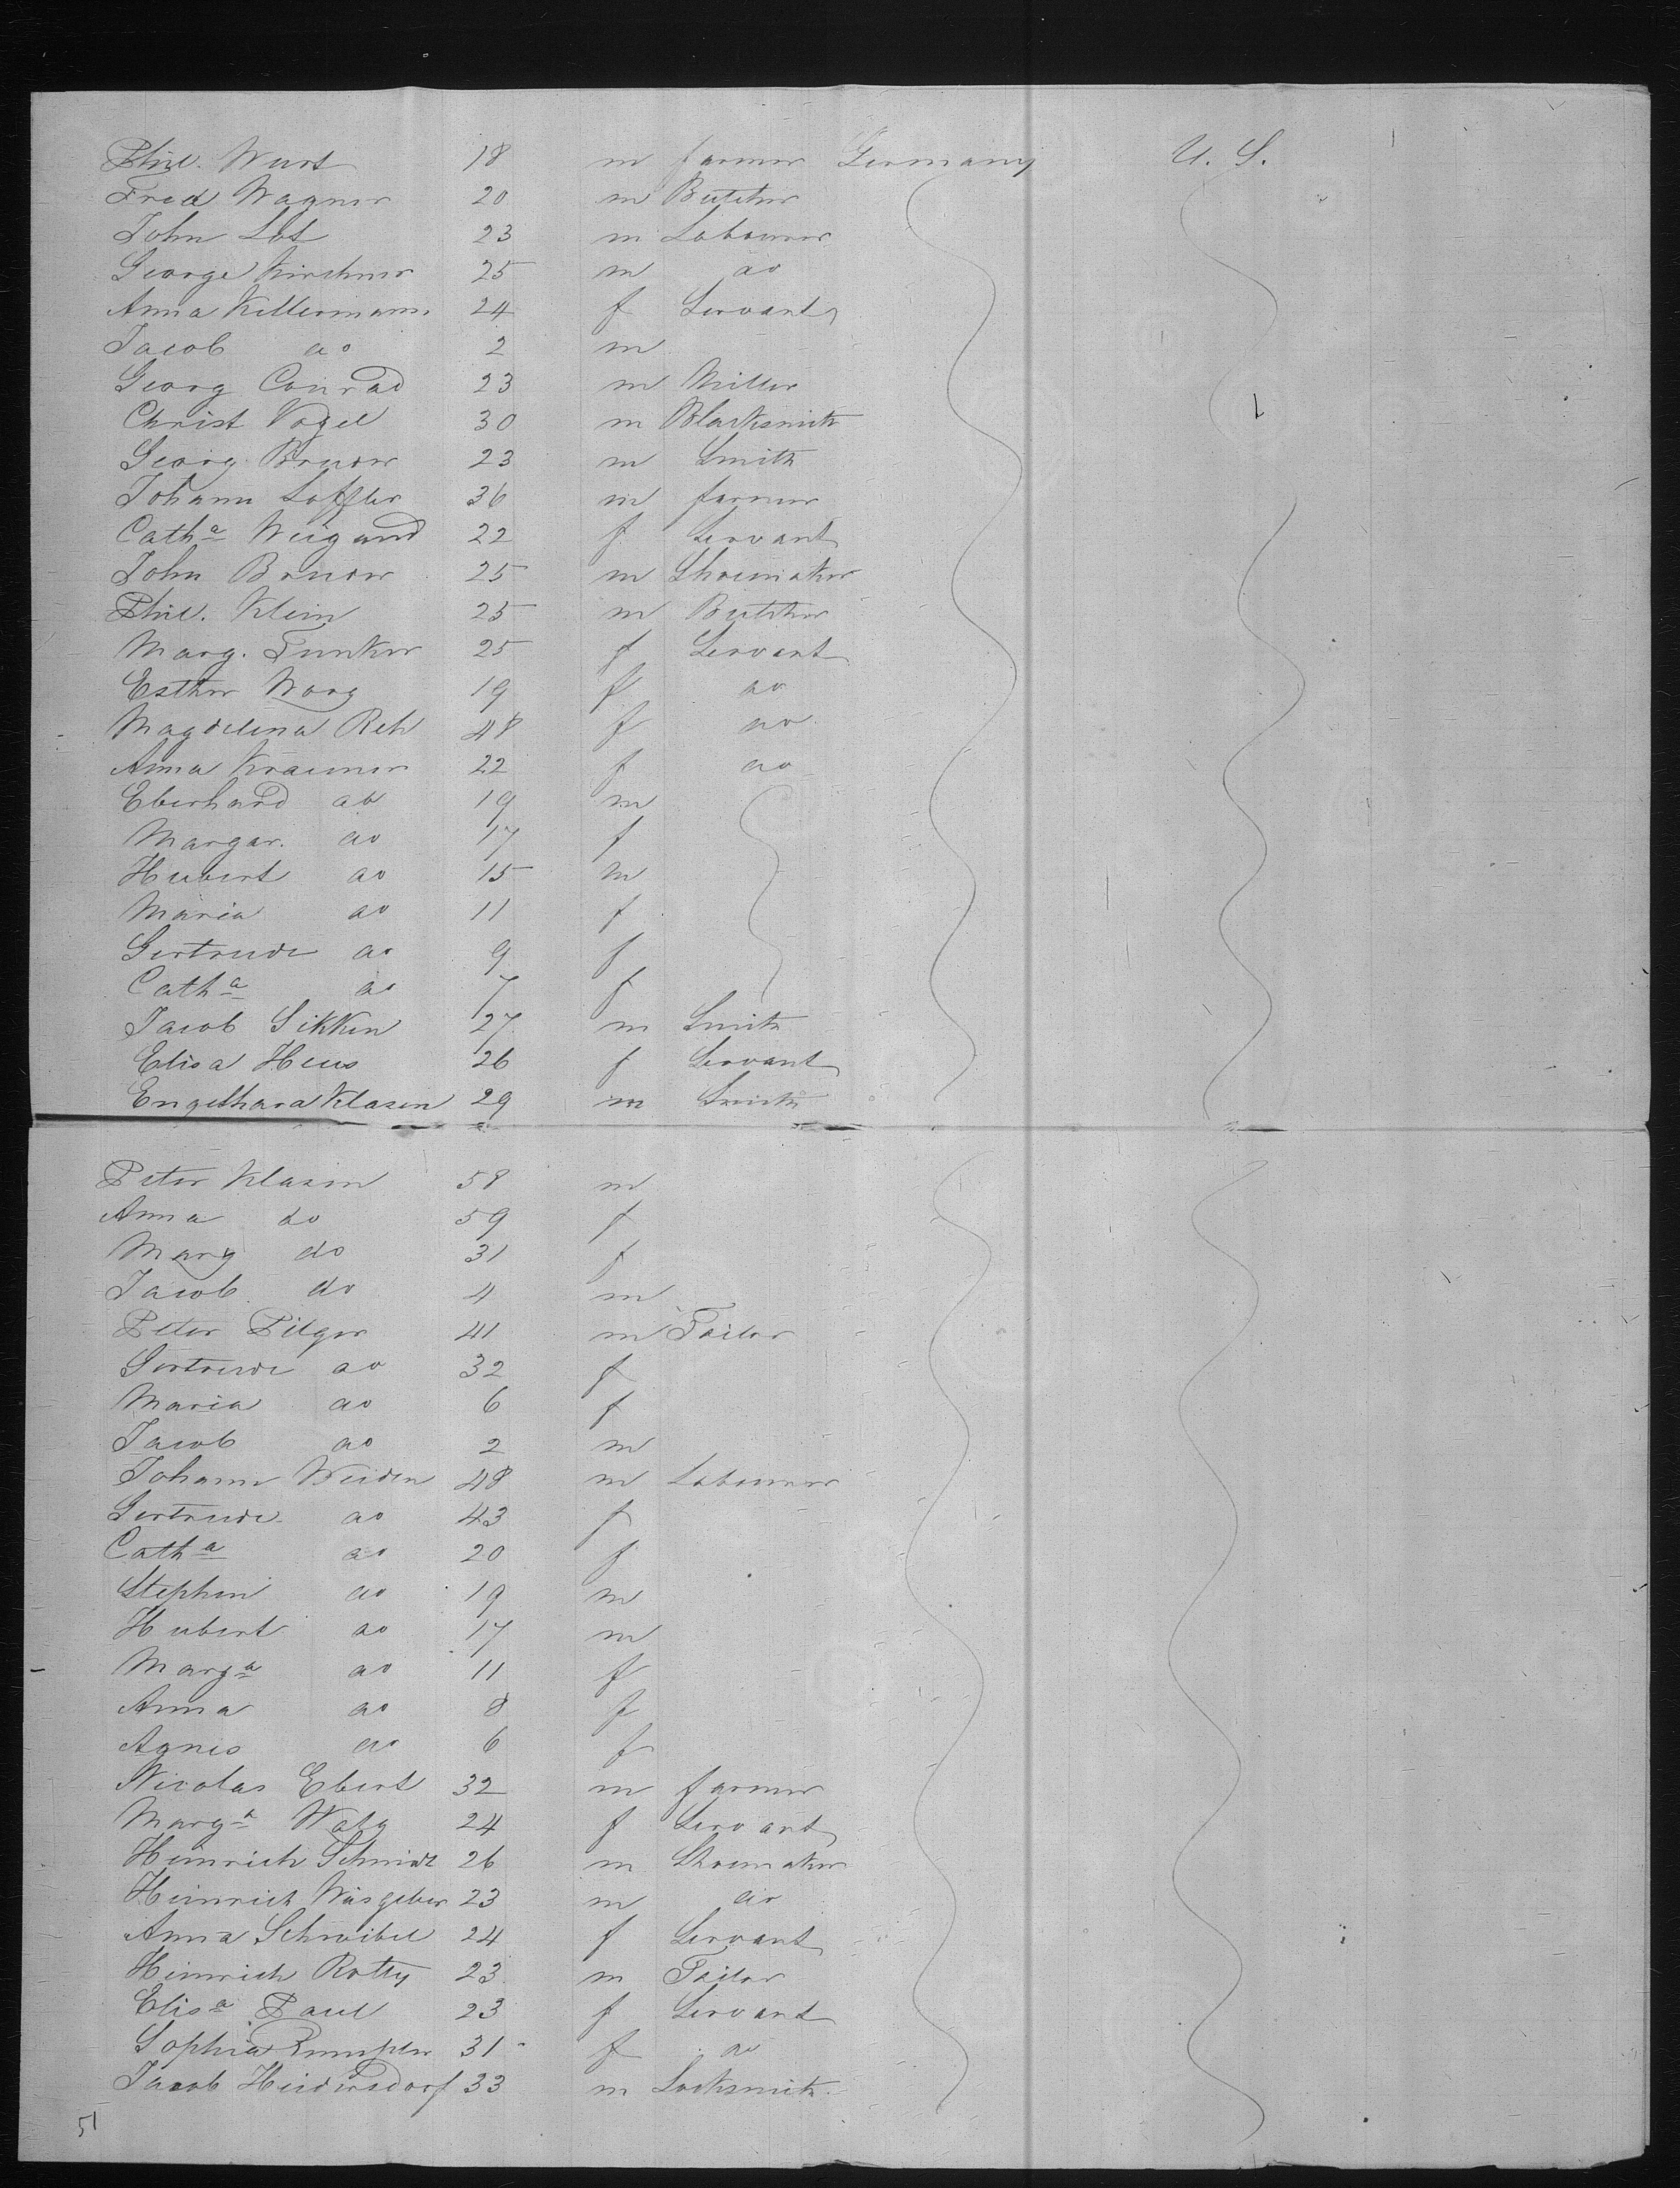 Phil. Wurst 18 m farmer Germany U. S.
Fred Wagner 20 m Butcher
John Lot 23 m Labourer
George Kirchner 25 m do
Anna Kellermann 24 f Servant
Jacob do 2 m
Georg Conrad 23 m Miller
Christ Vogel 30 m Blacksmith
Georg Bruder 23 m Smith
Johann Loffler 36 m farmer
Catha Weigand 22 f Servant
John Bruder 25 m Shoemaker
Phil. Klein 25 m Butcher
Marg. Junker 25 f Servant
Esther Worg 19 f do
Magdelena Reh 48 f do
Anna Kraemer 22 f do
Eberhard do 19 m
Margar. do 17 f
Hubert do 15 m
Maria do 11 f
Gertrude do 9 f
Catha do 7 f
Jacob Sikken 27 m Smith
Elisa Heus 26 f Servant
Engelhard Klasen 29 m Smith
Peter Klasen 58 m
Anna do 59 f
Marg do 31 f
Jacob do 4 m
Peter Pilger 41 m Tailor
Gertrude do 32 f
Maria do 6 f
Jacob do 2 m
Johann Weiden 48 m Labourer
Gertrude do 43 f
Catha do 20 f
Stephen do 19 m
Hubert do 17 m
Marga do 11 f
Anna do 8 f
Agnes do 6 f
Nicolas Ebert 32 m farmer
Marga 24 f Servant
Heinrich Schmidt 26 m Shoemaker
Heinrich 23 m do
Anna Schreibel 24 f Servant
Heinrich Rotty 23 m Tailor
Elisa Paul 23 f Servant
Sophia 31 f do
Jacob Heidersdorf 33 m Locksmith
51